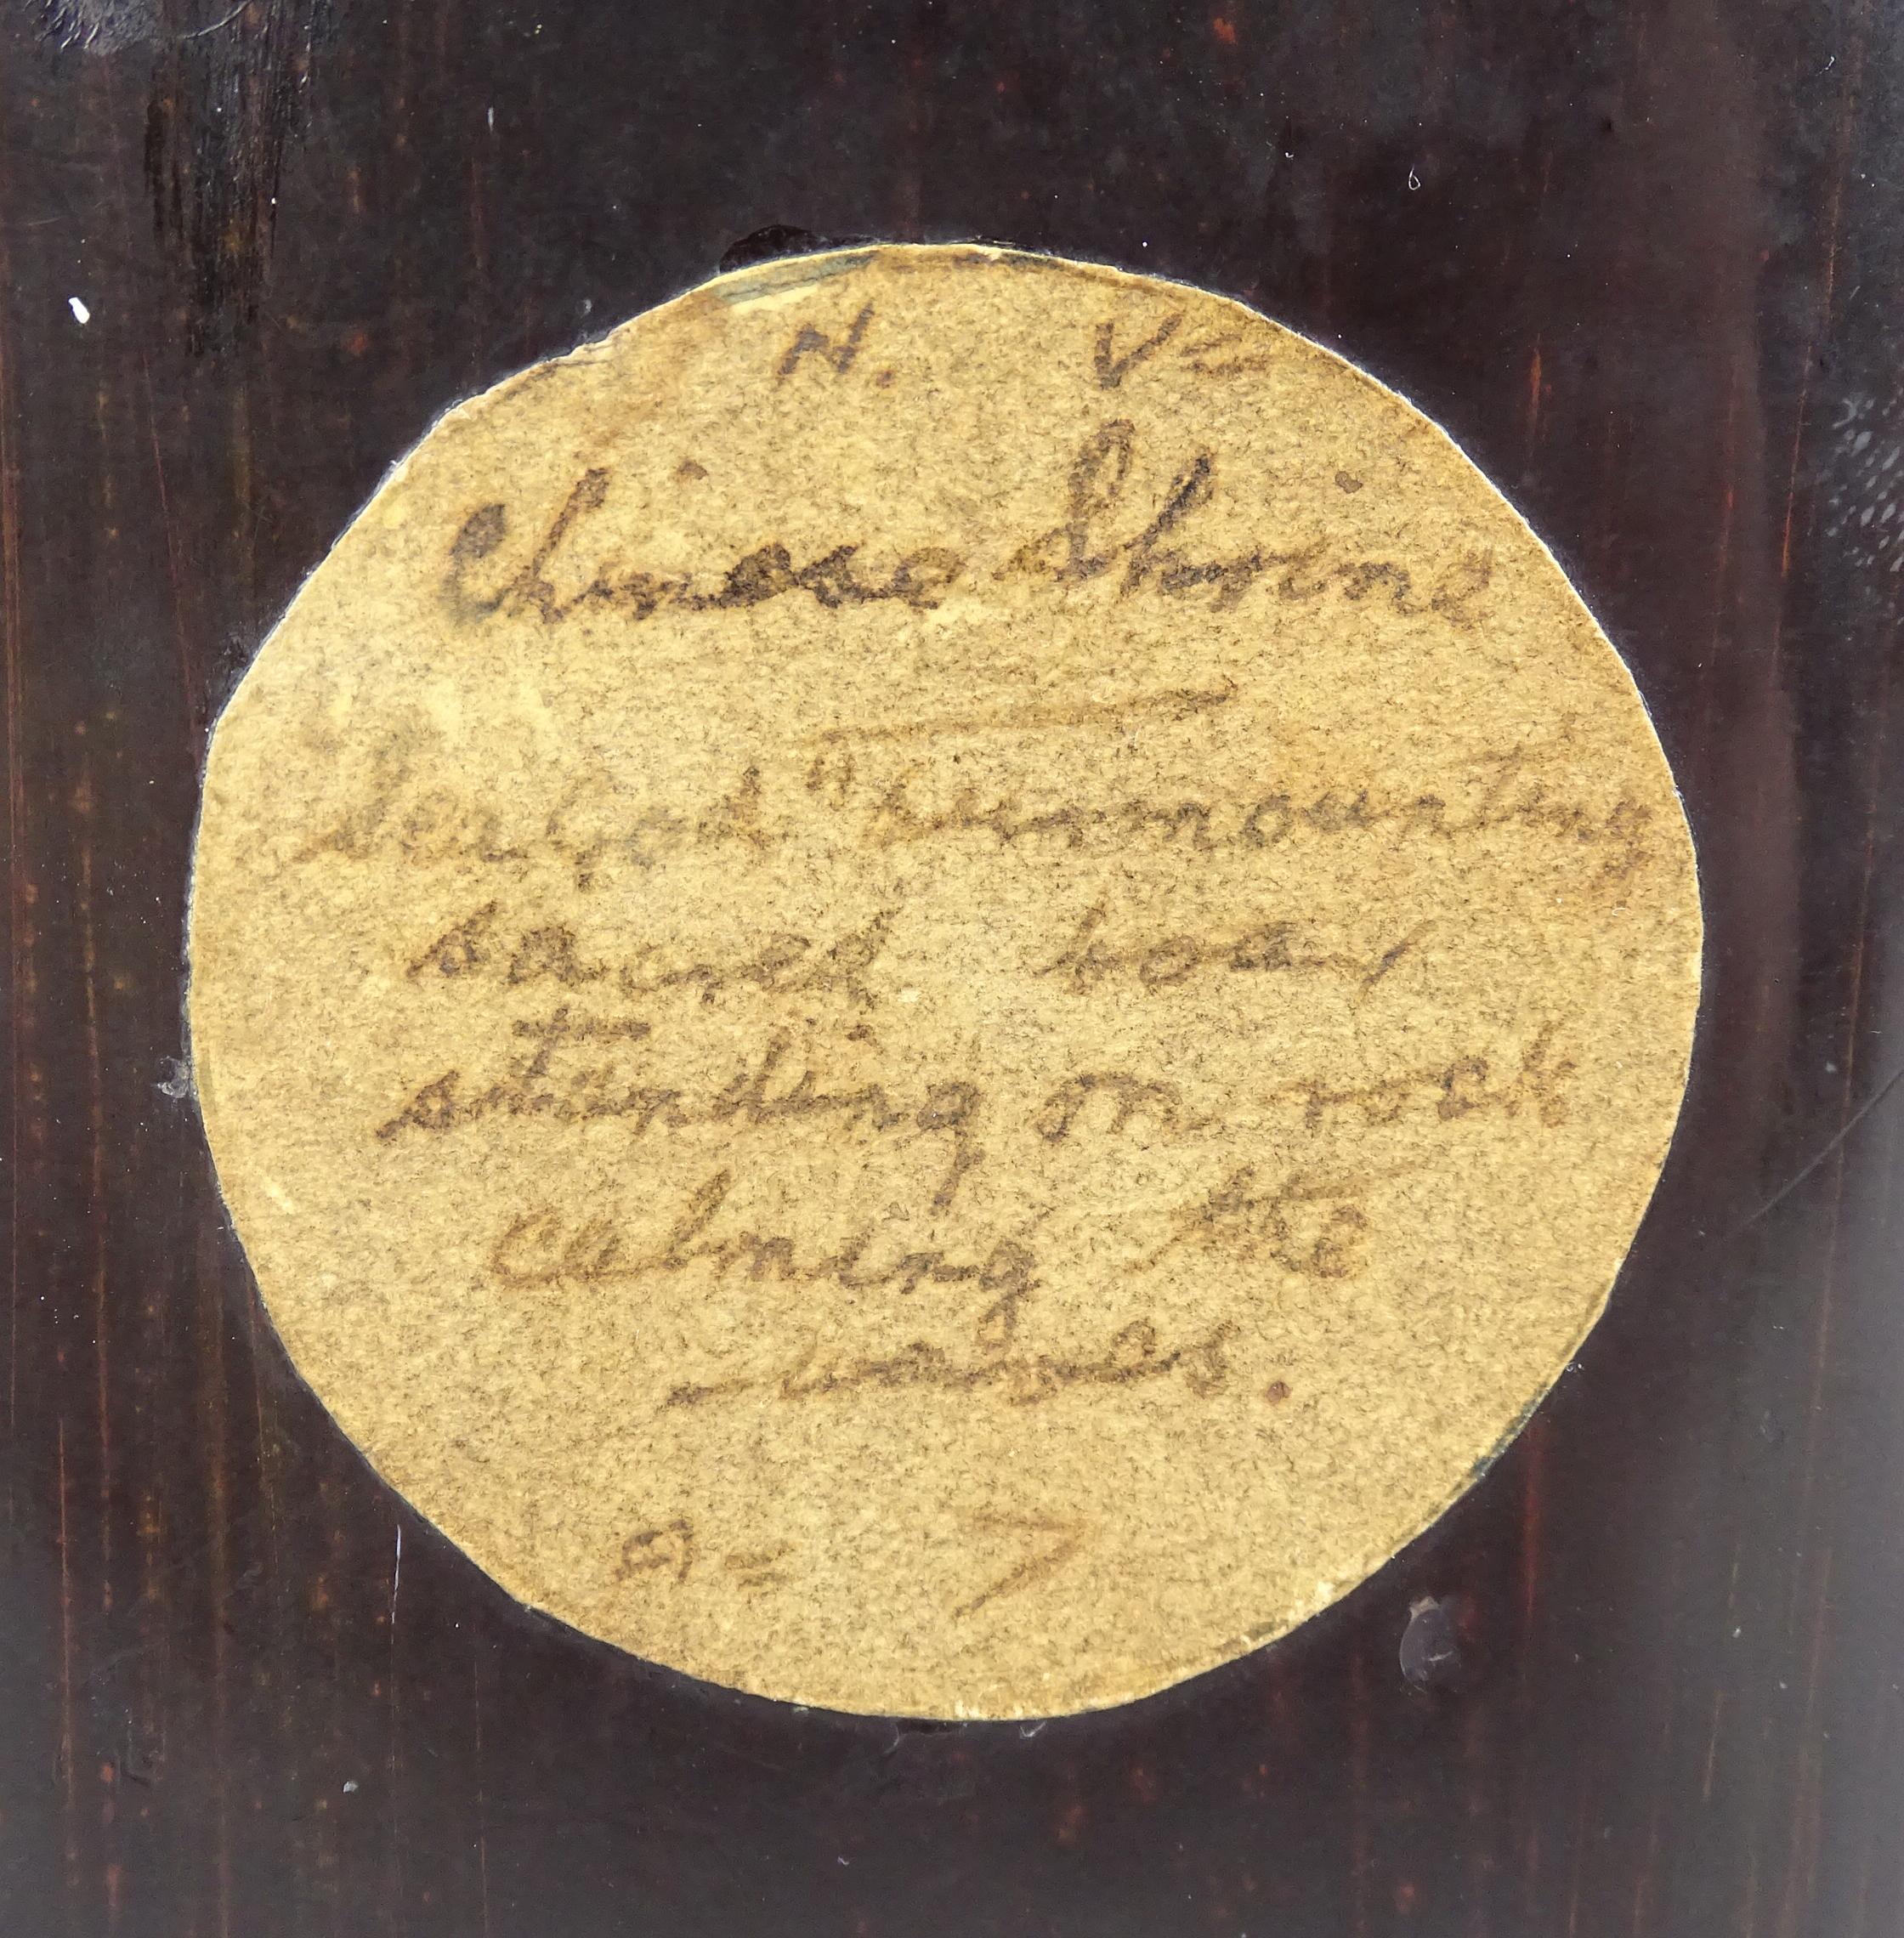 N. V
Chinese Shrine
Sea God surmounting
sacred boa,
standing on rock
calming the
waves.